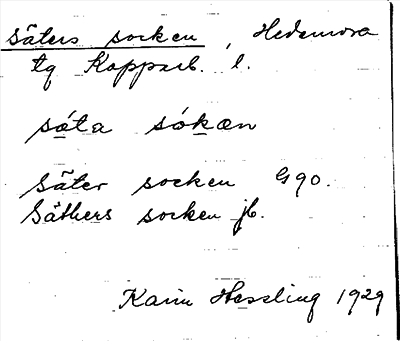 Säters socken, Hedemora
tg Kopparb. l.
sóta sókæn
Säter socken G90.
Säthers socken jb.
Karin Hessling 1929